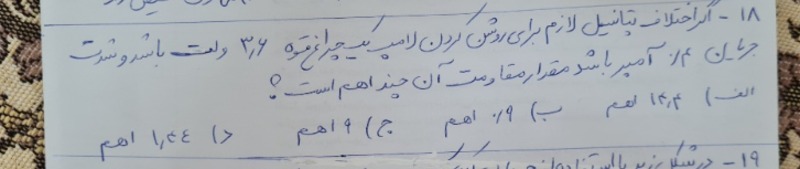 ۱۸ - اگر اختلاف پتانسیل لازم برای روشن کردن لامپ یک چراغ قوه ۳٫۶ ولت باشد و شدت
جریان ۰٫۴ آمپر باشد مقدار مقاومت آن چند اهم است؟
الف) ۱۴٫۴ اهم ب) ۰٫۹ اهم ج) ۹ اهم د) ۱٫۴۴ اهم
۱۹ - در شکل زیر با استفاده از